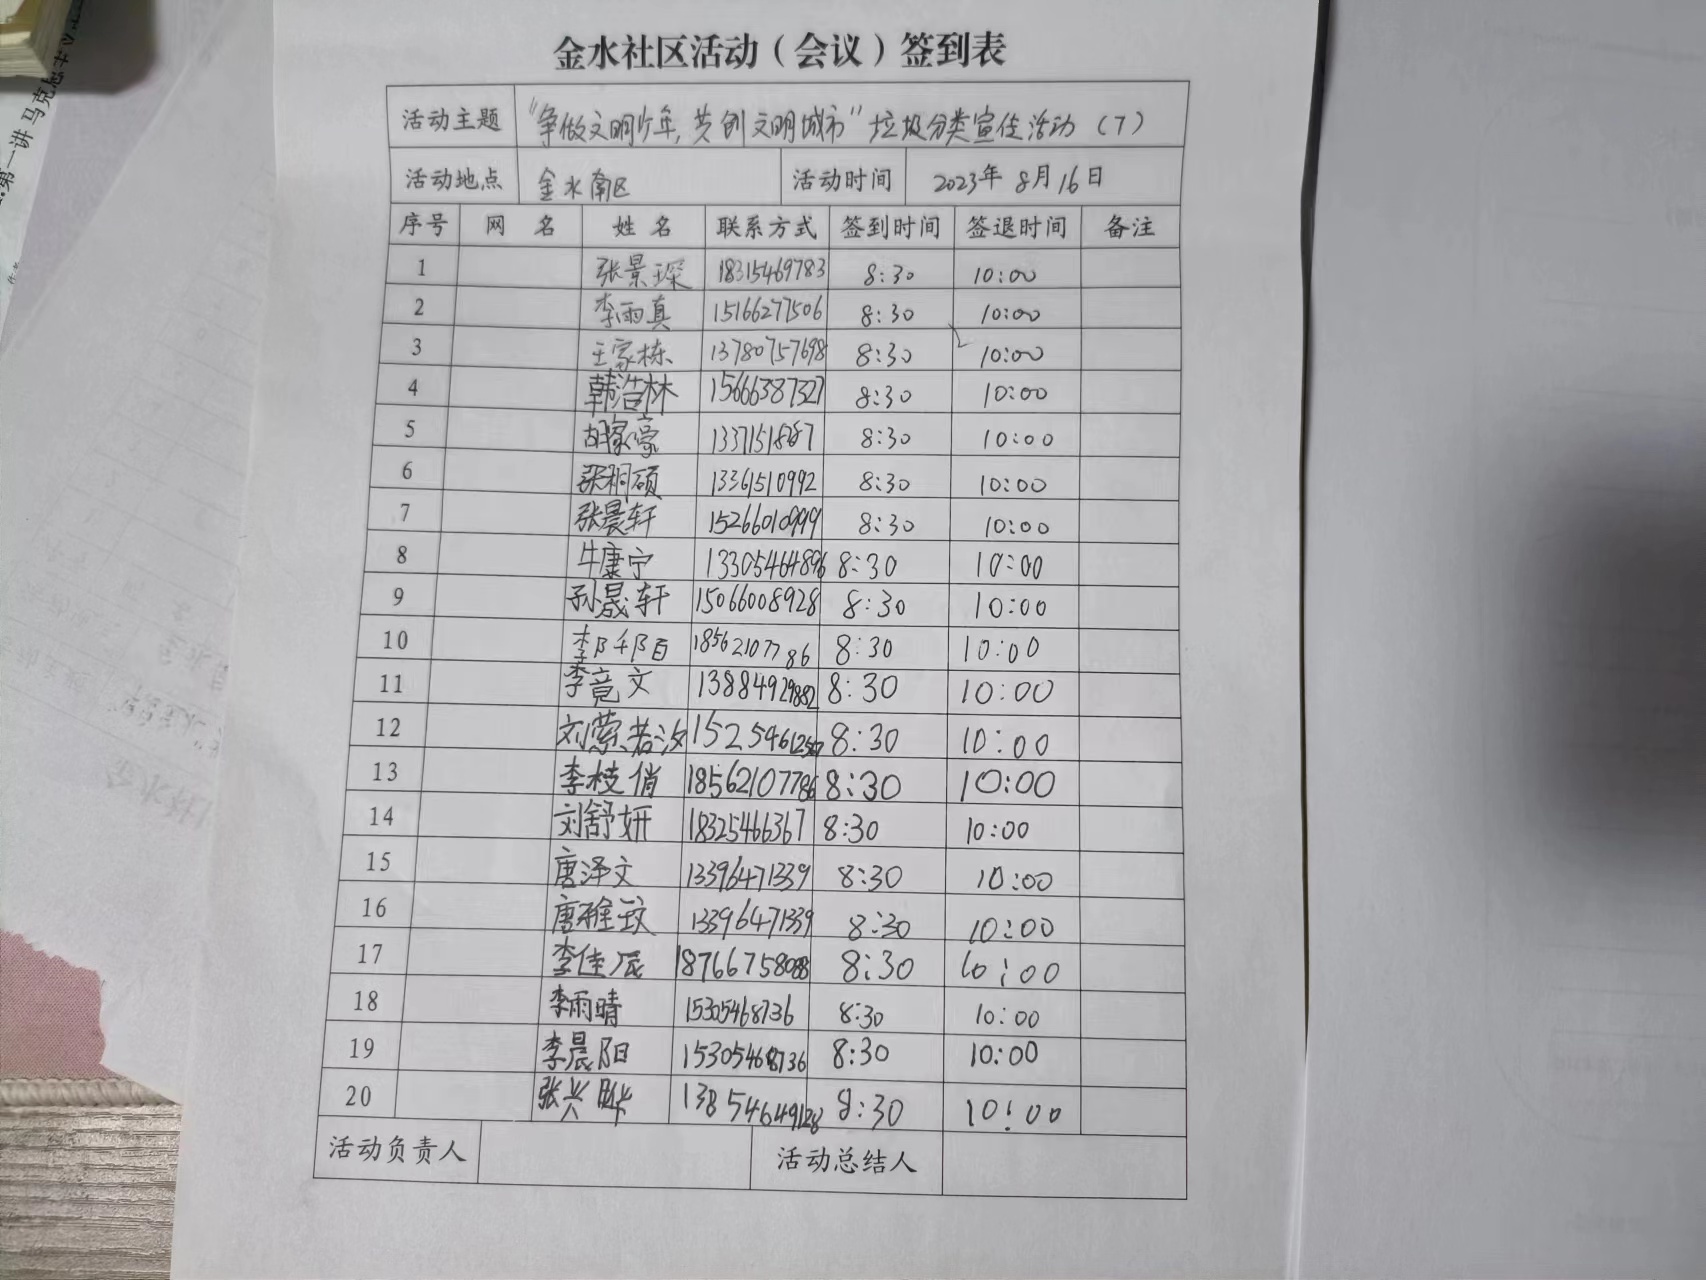 金水社区活动（会议）签到表
活动主题 “争做文明少年，共创文明城市”垃圾分类宣传活动（7）
活动地点 金水南区 活动时间 2023年8月16日
序号 网 名 姓 名 联系方式 签到时间 签退时间 备注
1 张景琛 18315469783 8:30 10:00
2 李雨真 15166277506 8:30 10:00
3 王家栋 13780757698 8:30 10:00
4 韩浩林 15666387327 8:30 10:00
5 胡家豪 8:30 10:00
6 张桐硕 13361510992 8:30 10:00
7 张晨轩 15266010999 8:30 10:00
8 牛康宁 13305464896 8:30 10:00
9 孙晟轩 15066008928 8:30 10:00
10 18562107786 8:30 10:00
11 李竟文 13884929882 8:30 10:00
12 刘萦若汐 8:30 10:00
13 李枝俏 18562107786 8:30 10:00
14 刘舒妍 18325466367 8:30 10:00
15 唐泽文 13396471339 8:30 10:00
16 唐雅致 13396471339 8:30 10:00
17 李佳辰 18766758088 8:30 10:00
18 李雨晴 15305468736 8:30 10:00
19 李晨阳 15305468736 8:30 10:00
20 张兴晔 13854649128 8:30 10:00
活动负责人 活动总结人
第一讲 马克思